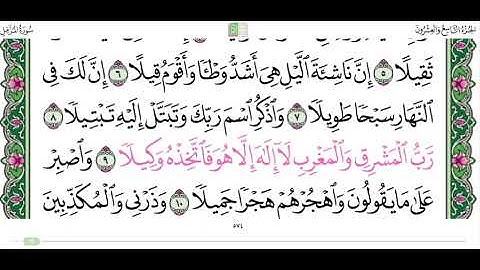 الجزء التاسع والعشرون
سورة المزمل
ثَقِيلًا ٥ إِنَّ نَاشِئَةَ ٱلَّيْلِ هِىَ أَشَدُّ وَطْـًٔا وَأَقْوَمُ قِيلًا ٦ إِنَّ لَكَ فِى
ٱلنَّهَارِ سَبْحًا طَوِيلًا ٧ وَٱذْكُرِ ٱسْمَ رَبِّكَ وَتَبَتَّلْ إِلَيْهِ تَبْتِيلًا ٨
رَّبُّ ٱلْمَشْرِقِ وَٱلْمَغْرِبِ لَآ إِلَـٰهَ إِلَّا هُوَ فَٱتَّخِذْهُ وَكِيلًا ٩ وَٱصْبِرْ
عَلَىٰ مَا يَقُولُونَ وَٱهْجُرْهُمْ هَجْرًا جَمِيلًا ١٠ وَذَرْنِى وَٱلْمُكَذِّبِينَ
٥٧٤